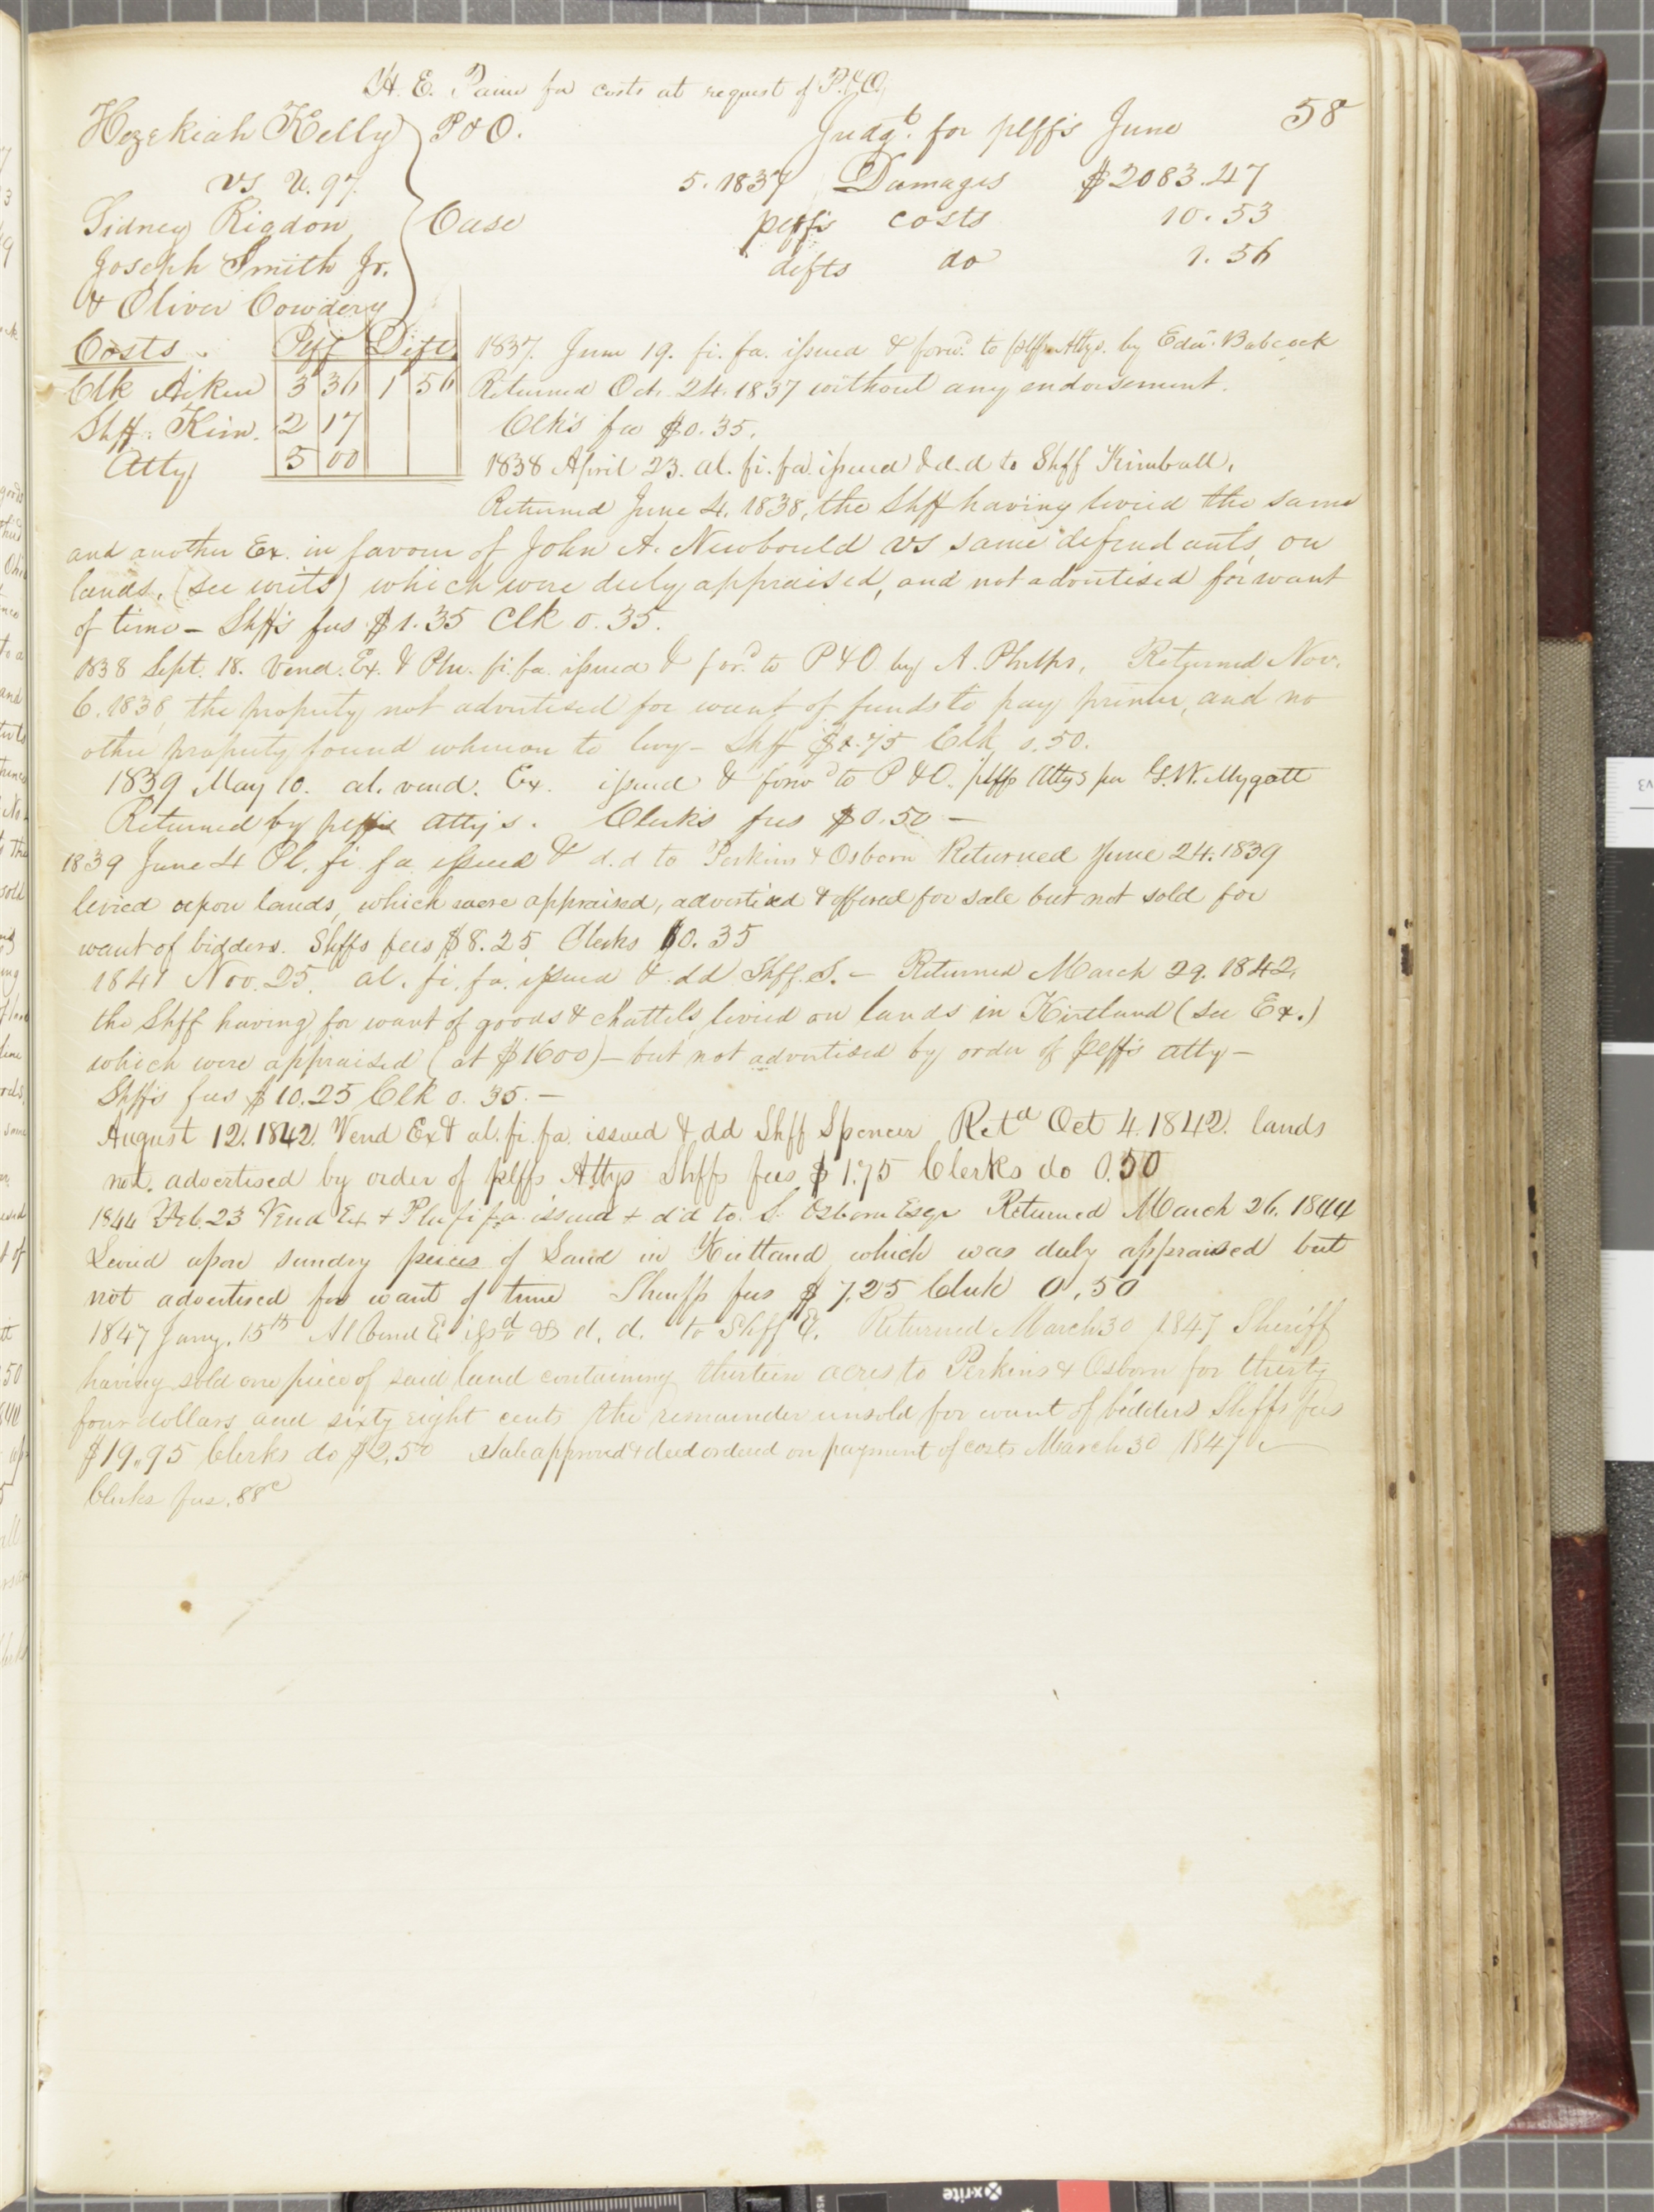 H. E. Paine for costs at request of P.&O.
58
Hezekiah Kelly P & O. Judgt. for plffs June
vs U. 97. 5. 1837 Damages $2083.47
Sidney Rigdon Case plffs costs 10.53
Joseph Smith Jr. defts do 1.56
& Oliver Cowdery
Costs. Plff Deft
Clk Aiken 3 36 1 56
Shff. Kim. 2 17
Atty 5 00
1837. June 19. fi. fa. issued & forwd. to plffs Attys. by Edw. Babcock
Returned Oct. 24. 1837 without any endorsement.
Clk's fee $0.35.
1838 April 23. al. fi. fa. issued & d.d to Shff Kimball,
Returned June 4. 1838, the Shff having levied the same
and another Ex. in favour of John A. Newbould vs same defendants, on
lands, (see writs) which were duly appraised, and not advertised for want
of time – Shff's fees $1.35 Clk 0.35.
1838 Sept. 18. Vend. Ex. & Plu. fi. fa. issued & ford. to P & O by A. Phelps, Returned Nov.
6. 1838, the property not advertised for want of funds to pay printer, and no
other property found whereon to levy – Shff $1.75 Clk 0.50.
1839 May 10. al. vend. Ex. issued & forwd to P & O. plffs Attys per G.W. Mygatt
Returned by plffs attys. Clerk's fees $0.50 –
1839 June 4 Pl. fi. fa. issued & d.d to Perkins & Osborn Returned June 24. 1839
levied upon lands, which were appraised, advertised & offered for sale but not sold for
want of bidders. Shffs fees $8.25 Clerks $0.35
1841 Nov. 25. al. fi. fa. issued & dd Shff. S. – Returned March 29. 1842,
the Shff having for want of goods & chattels, levied on lands in Kirtland (see Ex.)
which were appraised (at $1600) – but not advertised by order of plffs atty –
Shff's fees $10.25 Clk 0.35. –
August 12. 1842. Vend Ex & al. fi. fa. issued & dd Shff Spencer Retd Oct 4. 1842. lands
not. advertised by order of plffs Attys Shffs fees $1.75 Clerks do 0.50
1844 Feb. 23 Vend Ex & Plu fi fa issued & d'd to. S. Osborn Esqr Returned March 26. 1844
Levied upon sundry peices of Land in Kirtland which was duly appraised but
not advertised for want of time Sheriffs fees $7.25 Clerk 0.50
1847 Jany. 15th Al Vend E issd & d. d. to Shff E. Returned March 30 1847 Sheriff
having sold one piece of said land containing thirteen acres to Perkins & Osborn for thirty
four dollars and sixty eight cents the remainder unsold for want of bidders Shffs fees
$19.95 Clerks do $2.50 Sale approved & deed ordered on payment of costs March 30 1847
Clerks fees .88c